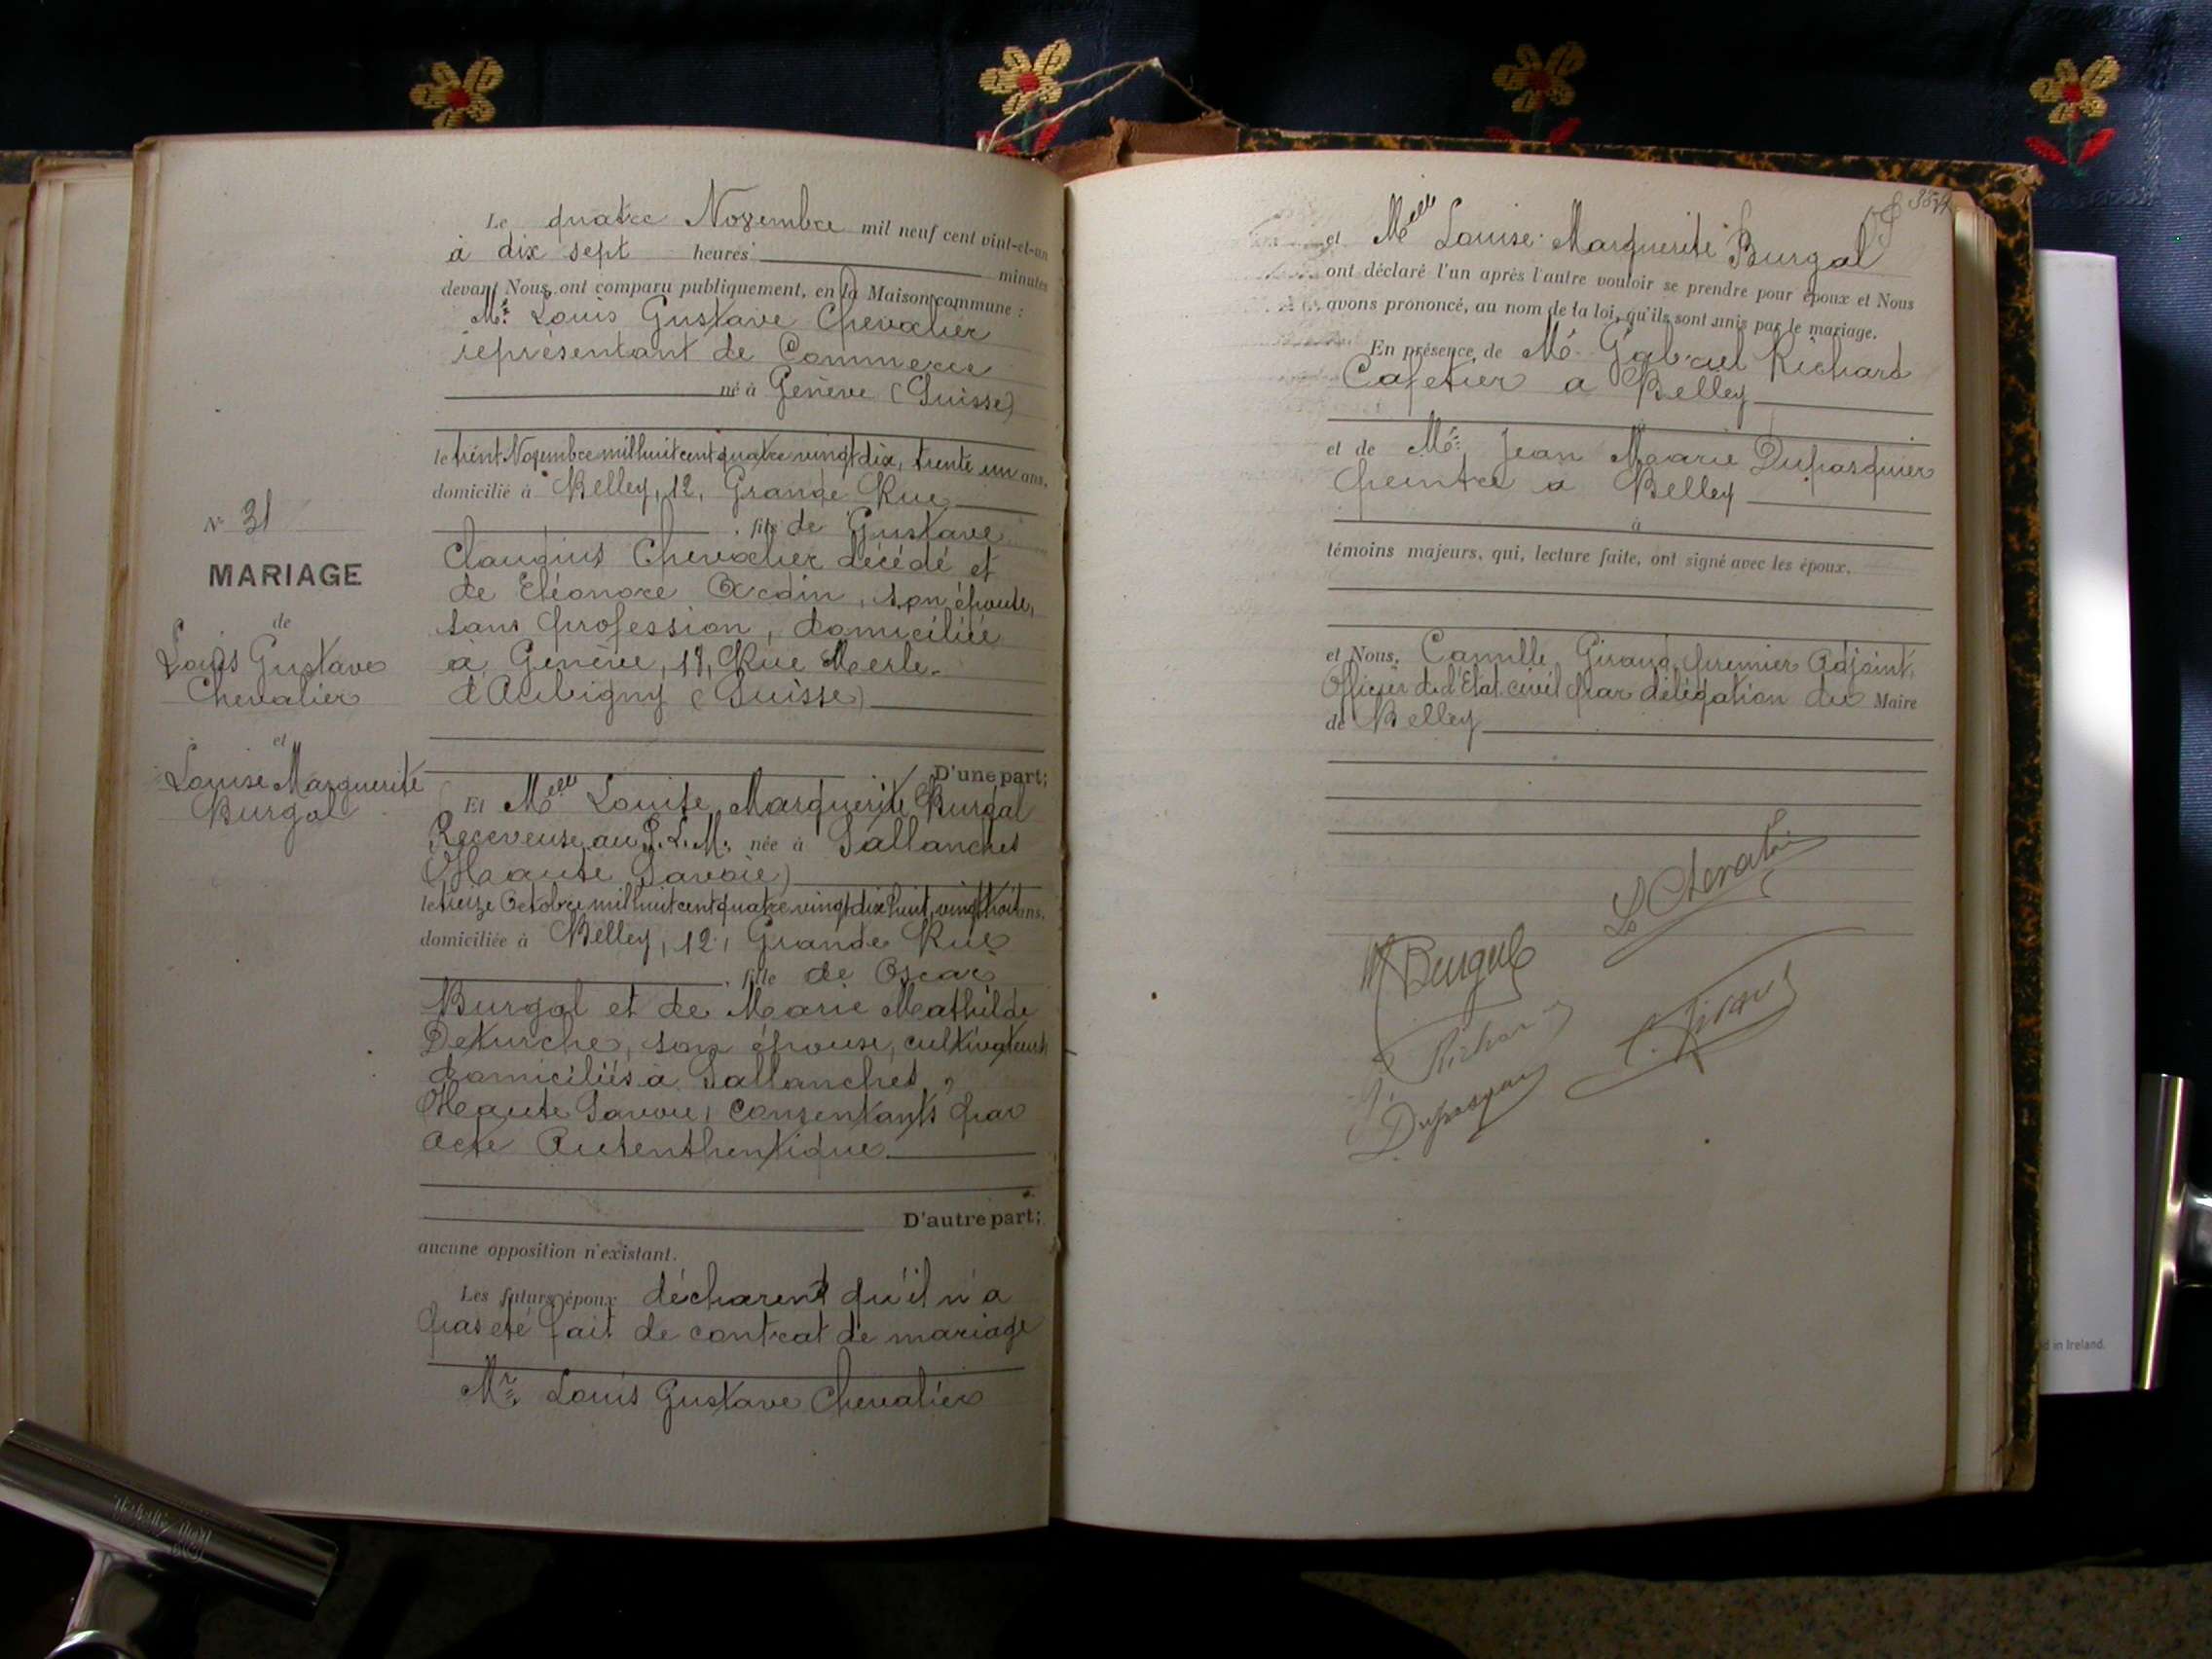 N° 31
MARIAGE
de
Louis Gustave
Chevalier
et
Louise Marguerite
Burgal
Le quatre Novembre mil neuf cent vint-et-un
à dix sept heures minutes
devant Nous ont comparu publiquement, en la Maison commune :
Mr Louis Gustave Chevalier
représentant de Commerce
né à Genève (Suisse)
le trent Novembre mil huit cent quatre vingt dix, trente un ans.
domicilié à Belley, 12, Grande Rue
fils de Gustave
Claudius Chevalier décédé et
de Eléonore Ardin, son épouse,
sans profession, domiciliée
à Genève, 19, Rue Merle-
d'Aubigny (Suisse)
D'une part;
Et Melle Louise Marguerite Burgal
Receveuse au P.L.M. née à Sallanches
(Haute Savoie)
le treize Octobre mil huit cent quatre vingt dix huit, vingt trois ans.
domiciliée à Belley, 12, Grande Rue
fille de Oscar
Burgal et de Marie Mathilde
Deturche, son épouse, cultivateurs
domiciliés à Sallanches,
Haute Savoie, consentants par
acte Autenthentique
D'autre part;
aucune opposition n'existant.
Les futurs époux décharent qu'il n'a
pas été fait de contrat de mariage
Mr Louis Gustave Chevalier
et Melle Louise Marguerite Burgal
ont déclaré l'un après l'autre vouloir se prendre pour époux et Nous
avons prononcé, au nom de la loi, qu'ils sont unis par le mariage.
En présence de Mr Gabriel Richard
Cafetier à Belley
et de Mr Jean Marie Dupasquier
peintre à Belley
à
témoins majeurs, qui, lecture faite, ont signé avec les époux,
et Nous, Camille Giraud, premier Adjoint,
Officier de l'Etat civil par délégation du Maire
de Belley
Ls Chevalier
M Burgal
C. Giraud
Richard
Dupasquier
d in Ireland.